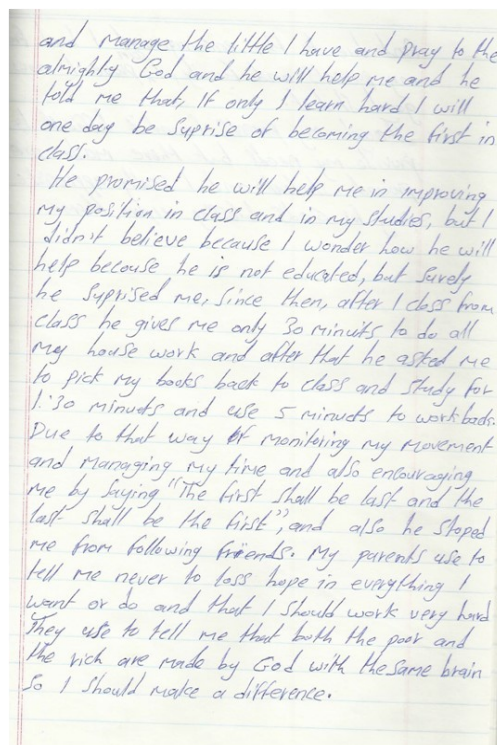 and manage the little I have and pray to the
almighty God and he will help me and he
told me that, If only I learn hard I will
one day be Suprise of becoming the first in
class.
He promised he will help me in improving
my position in class and in my studies, but I
didn't believe because I wonder how he will
help because he is not educated, but Surely
he Suprised me, Since then, after I closs from
class he gives me only 30 minuits to do all
my house work and after that he asked me
to pick my books back to class and study for
1:30 minuets and use 5 minuets to work back.
Due to that way of monitoring my movement
and managing my time and also encouraging
me by saying "The first shall be last and the
last shall be the first", and also he stoped
me from following friends. My parents use to
tell me never to loss hope in everything I
want or do and that I should work very hard
They use to tell me that both the poor and
the rich are made by God with the same brain
So I should make a difference.